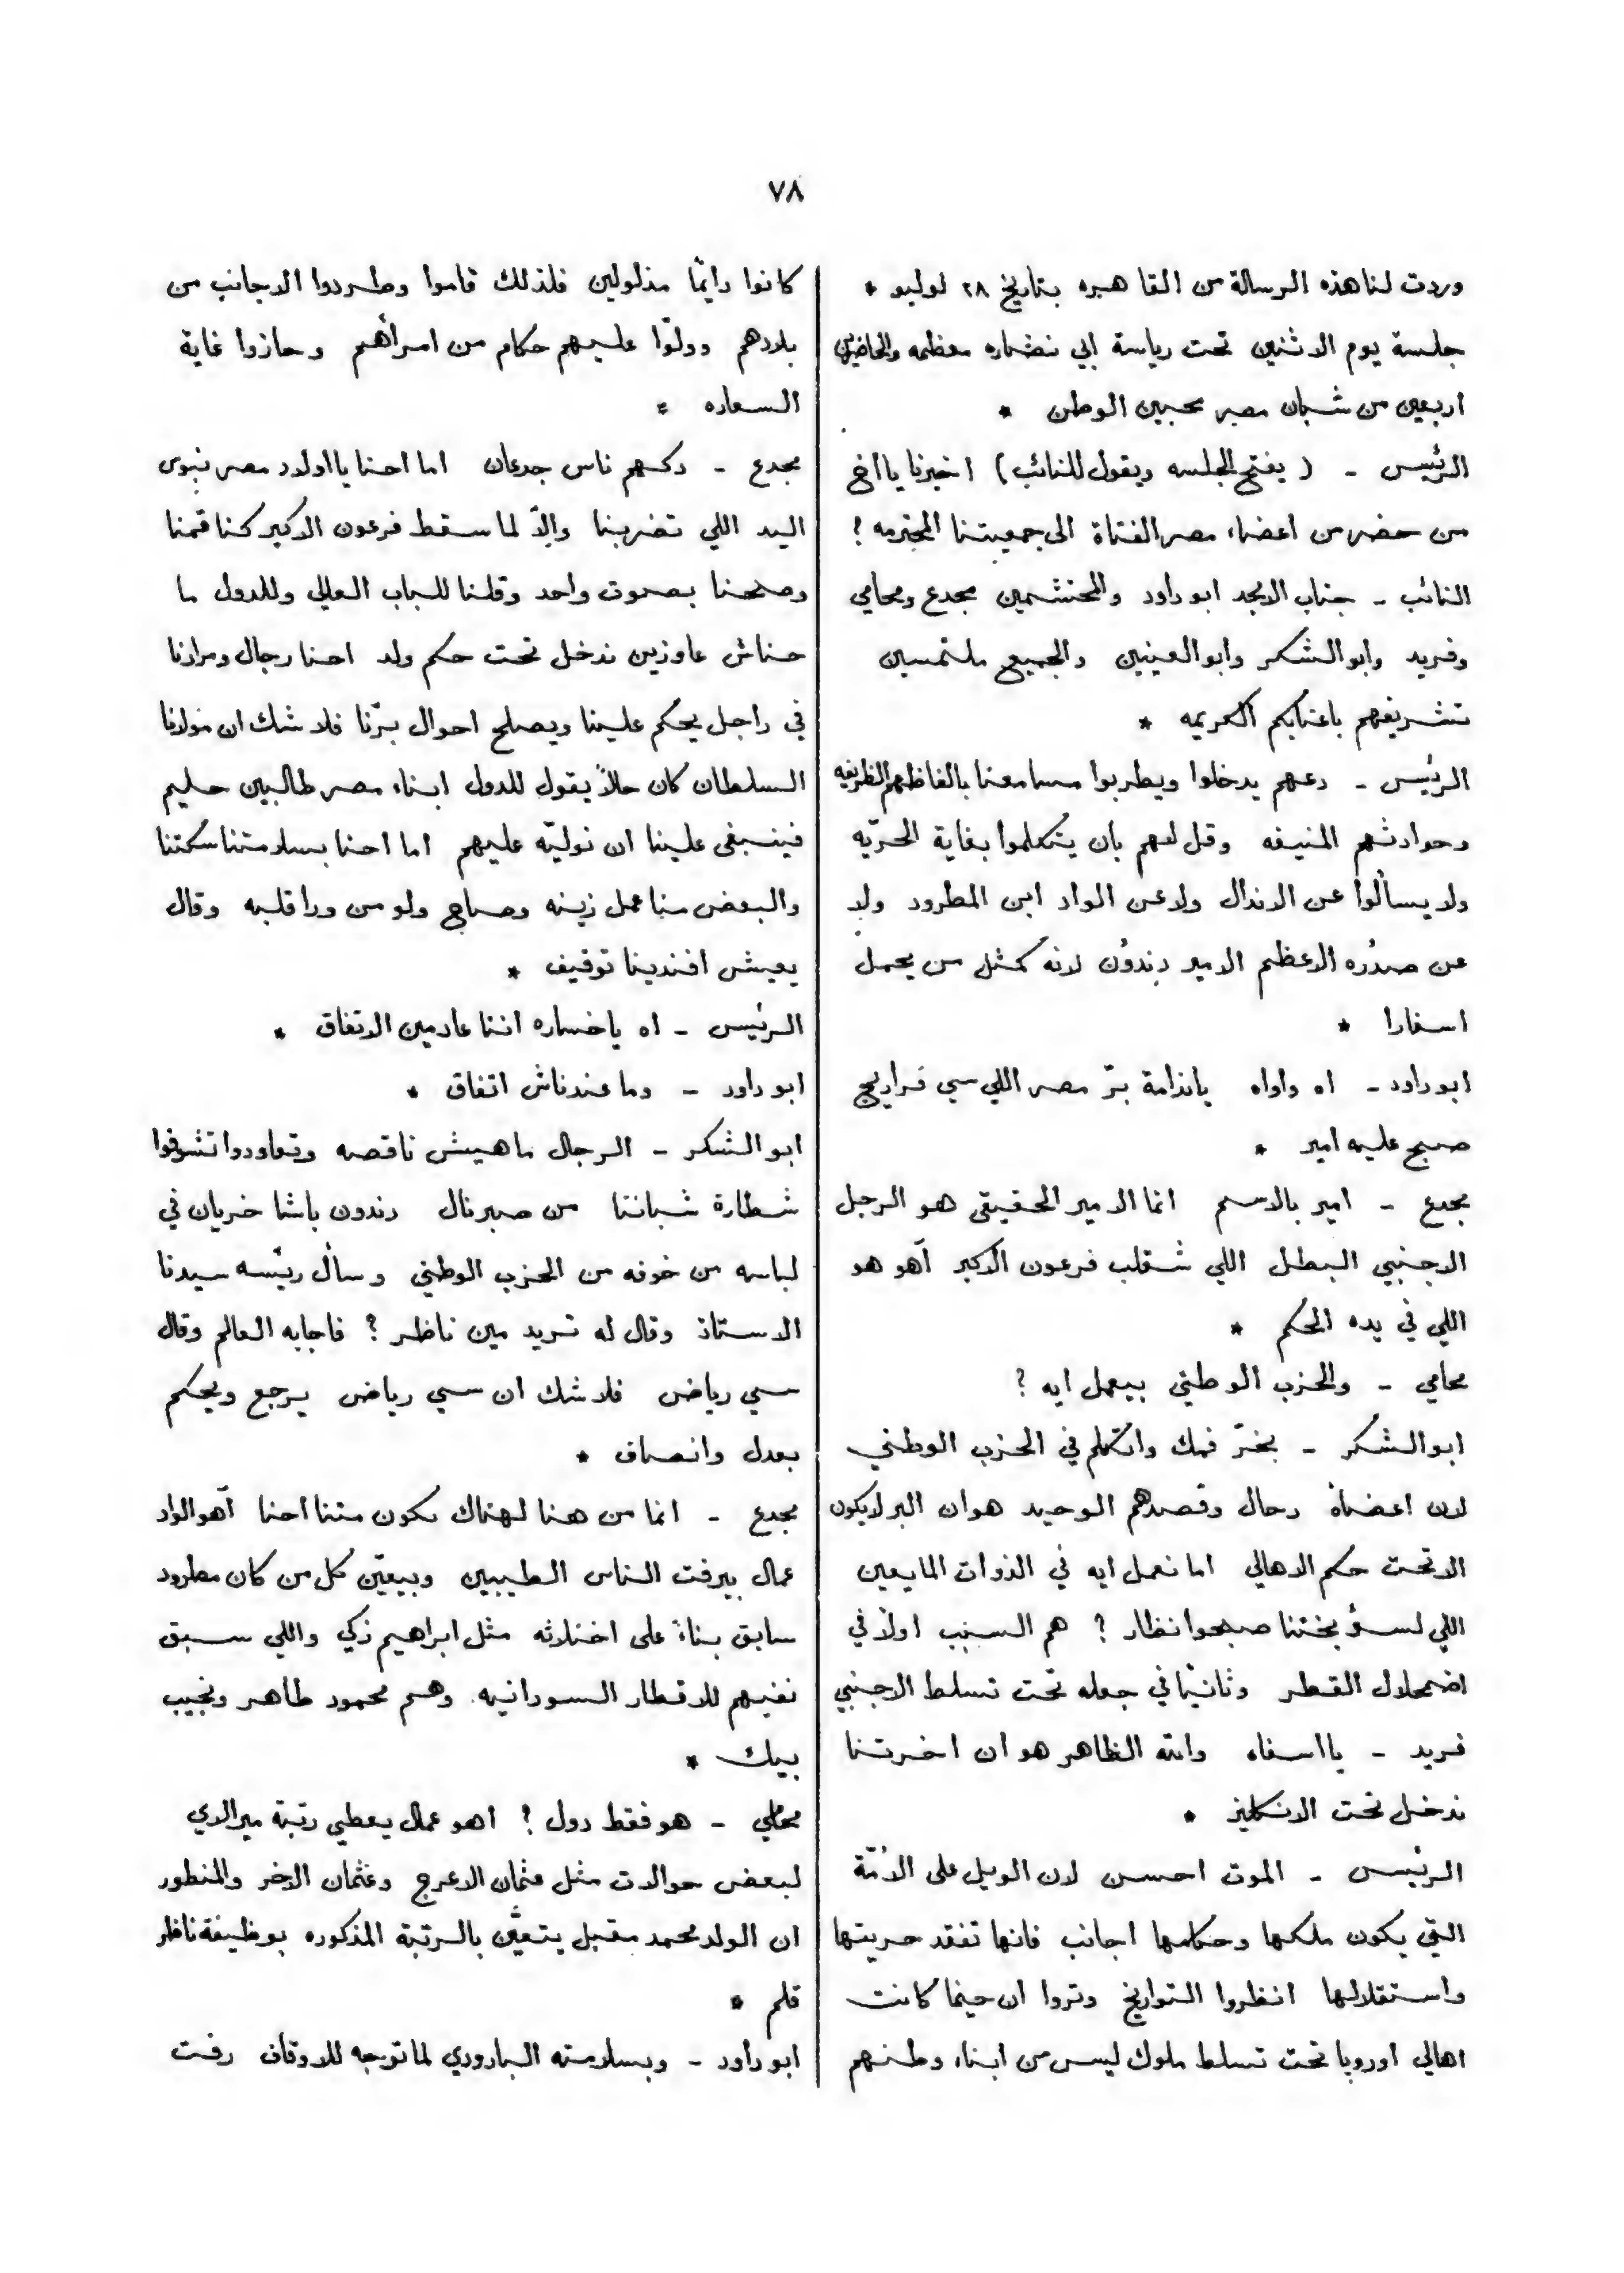 ٧٨
وردت لنا هذه الرسالة من القاهره بتاريخ ٢٨ لوليو *
جلسة يوم الاثنين تحت رياسة ابي نضاره معظمه والحاضرين
اربعين من شبان مصر محبين الوطن *
الرئيس - ( يفتح الجلسه ويقول للنائب ) اخبرنا يا اخ
من حضر من اعضاء مصر الفتاة الى جمعيتنا المحترمه ؟
النائب - جناب الامجد ابو داود والمحتشمين مجدع ومحامي
وفريد وابو الشكر وابو العينين والجميع ملتمسين
تشريفهم باعتابكم الكريمه *
الرئيس - دعهم يدخلوا ويطربوا مسامعنا بالفاظهم الظريفه
وحوادثهم المنيفه وقل لهم بان يتكلموا بغاية الحرّيه
ولا يسألوا عن الاندال ولا عن الواد ابن المطرود ولا
عن صدره الاعظم الامير دندون لانه كمثل من يحمل
اسفارا *
ابو داود - اه واواه ياندامة برّ مصر اللي سي فراريج
صبح عليه امير *
مجدع - امير بالاسم انما الامير الحقيقي هو الرجل
الاجنبي البطل اللي شقلب فرعون الاكبر آهو هو
اللي في يده الحكم *
محامي - والحزب الوطني بيعمل ايه ؟
ابو الشكر - بخرّ فمك واتكلم في الحزب الوطني
لان اعضاهُ رجال وقصدهم الوحيد هو ان البر لا يكون
الا تحت حكم الاهالي اما نعمل ايه في الذوات المايعين
اللي لسؤ بختنا صبحوا نظار ؟ هم السبب اولاً في
اضمحلال القطر وثانياً في جعله تحت تسلط الاجنبي
فريد - يا اسفاه والله الظاهر هو ان اخرتنا
ندخل تحت الانكليز *
الرئيس - الموت احسن لان الويل على الاُمّة
التي يكون ملكها وحكامها اجانب فانها تفقد حريتها
واستقلالها انظروا التواريخ وتروا ان حينما كانت
اهالي اوروبا تحت تسلط ملوك ليس من ابناء وطنهم
كانوا دايماً مذلولين فلذلك قاموا وطردوا الاجانب من
بلادهم وولّوا عليهم حكام من امرأهم وحازوا غاية
السعاده *
مجدع - دكهم ناس جدعان اما احنا يا اولاد مصر نبوس
اليد اللي تضربنا والّا لما سقط فرعون الاكبر كنا قمنا
وصحنا بصوت واحد وقلنا للباب العالي وللدول ما
حناش عاوزين ندخل تحت حكم ولد احنا رجال ومرادنا
في راجل يحكم علينا ويصلح احوال برّنا فلا شك ان مولانا
السلطان كان حلاً يقول للدول ابناء مصر طالبين حليم
فينبغى علينا ان نوليّه عليهم اما احنا بسلامتنا سكتنا
والبعض منا عمل زينه وصاح ولو من ورا قلبه وقال
يعيش افندينا توفيق *
الرئيس - اه ياخساره اننا عادمين الاتفاق *
ابو داود - وما عندناش اتفاق *
ابو الشكر - الرجال ماهيش ناقصه وتعاودوا تشوفوا
شطارة شباننا من صبر نال دندون باشا خريان في
لباسه من خوفه من الحزب الوطني وسأل ريّسه سيدنا
الاستاذ وقال له تريد مين ناظر ؟ فاجابه العالم وقال
سي رياض فلا شك ان سي رياض يرجع ويحكم
بعدل وانصاف *
مجدع - انما من هنا لهناك نكون متنا احنا آهو الواد
عمال بيرفت الناس الطيبين وبيعيّن كل من كان مطرود
سابق بناءً على اختلاثه مثل ابراهيم زكي واللي سبق
نفيهم للاقطار السودانيه وهم محمود طاهر ونجيب
بيك *
محامي - هو فقط دول ؟ اهو عمال يعطي رتبة ميرالاي
لبعض حوالات مثل عثمان الاعرج وعثمان الاخر والمنظور
ان الولد محمد مقبل يتعيّن بالرتبة المذكوره بوظيفة ناظر
قلم *
ابو داود - وبسلامته البارودي لما توجه للاوقاف رفت